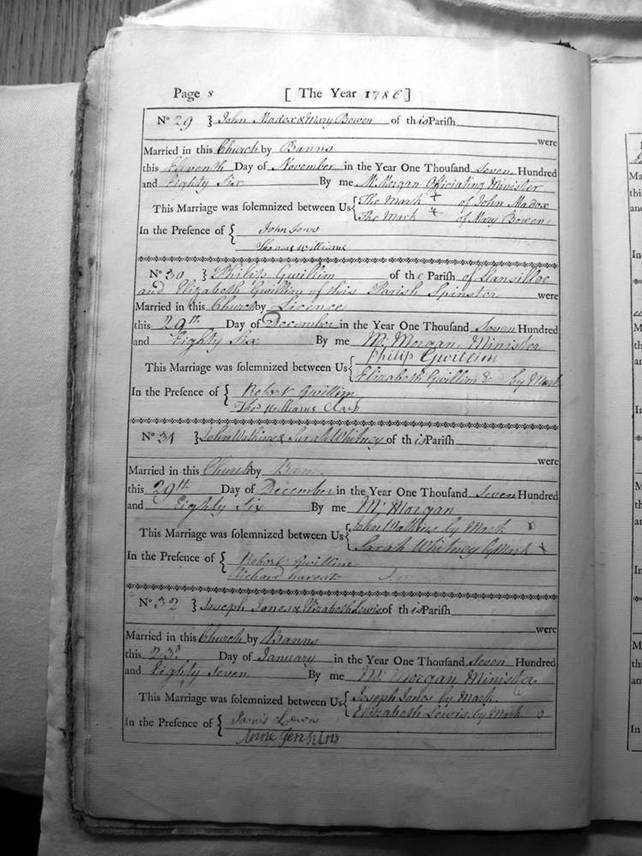 Page 8 [ The Year 1786 ]
No 29 } John Madox & Mary Bowen of this Parish
were
Married in this Church by Banns
this Eleventh Day of November in the Year One Thousand Seven Hundred
and Eighty Six By me M. Morgan Officiating Minister
This Marriage was solemnized between Us { The Mark + of John Madox
The Mark + of Mary Bowen
In the Presence of { John
Thomas Williams
No 30 } Philip Gwillim of the Parish of Lansilloe
and Elizabeth Gwillim of this Parish Spinster were
Married in this Church by Licence
this 29th Day of December in the Year One Thousand Seven Hundred
and Eighty Six By me M. Morgan Minister
This Marriage was solemnized between Us { Philip Gwillim
Elizabeth Gwillim by Mark
In the Presence of { Robert Gwillim
Tho Williams
No 31 } John Watkins & Sarah Whitney of this Parish
were
Married in this Church by Banns
this 29th Day of December in the Year One Thousand Seven Hundred
and Eighty Six By me M. Morgan
This Marriage was solemnized between Us { John Watkins by Mark
Sarah Whitney by Mark +
In the Presence of { Robert Gwillim
Richard
No 32 } Joseph Jones & Elizabeth Lewis of this Parish
were
Married in this Church by Banns
this 23d Day of January in the Year One Thousand Seven Hundred
and Eighty Seven By me M. Morgan Minister
This Marriage was solemnized between Us { Joseph Jones by Mark
Elizabeth Lewis by Mark
In the Presence of { Lewis
Anne Jenkins